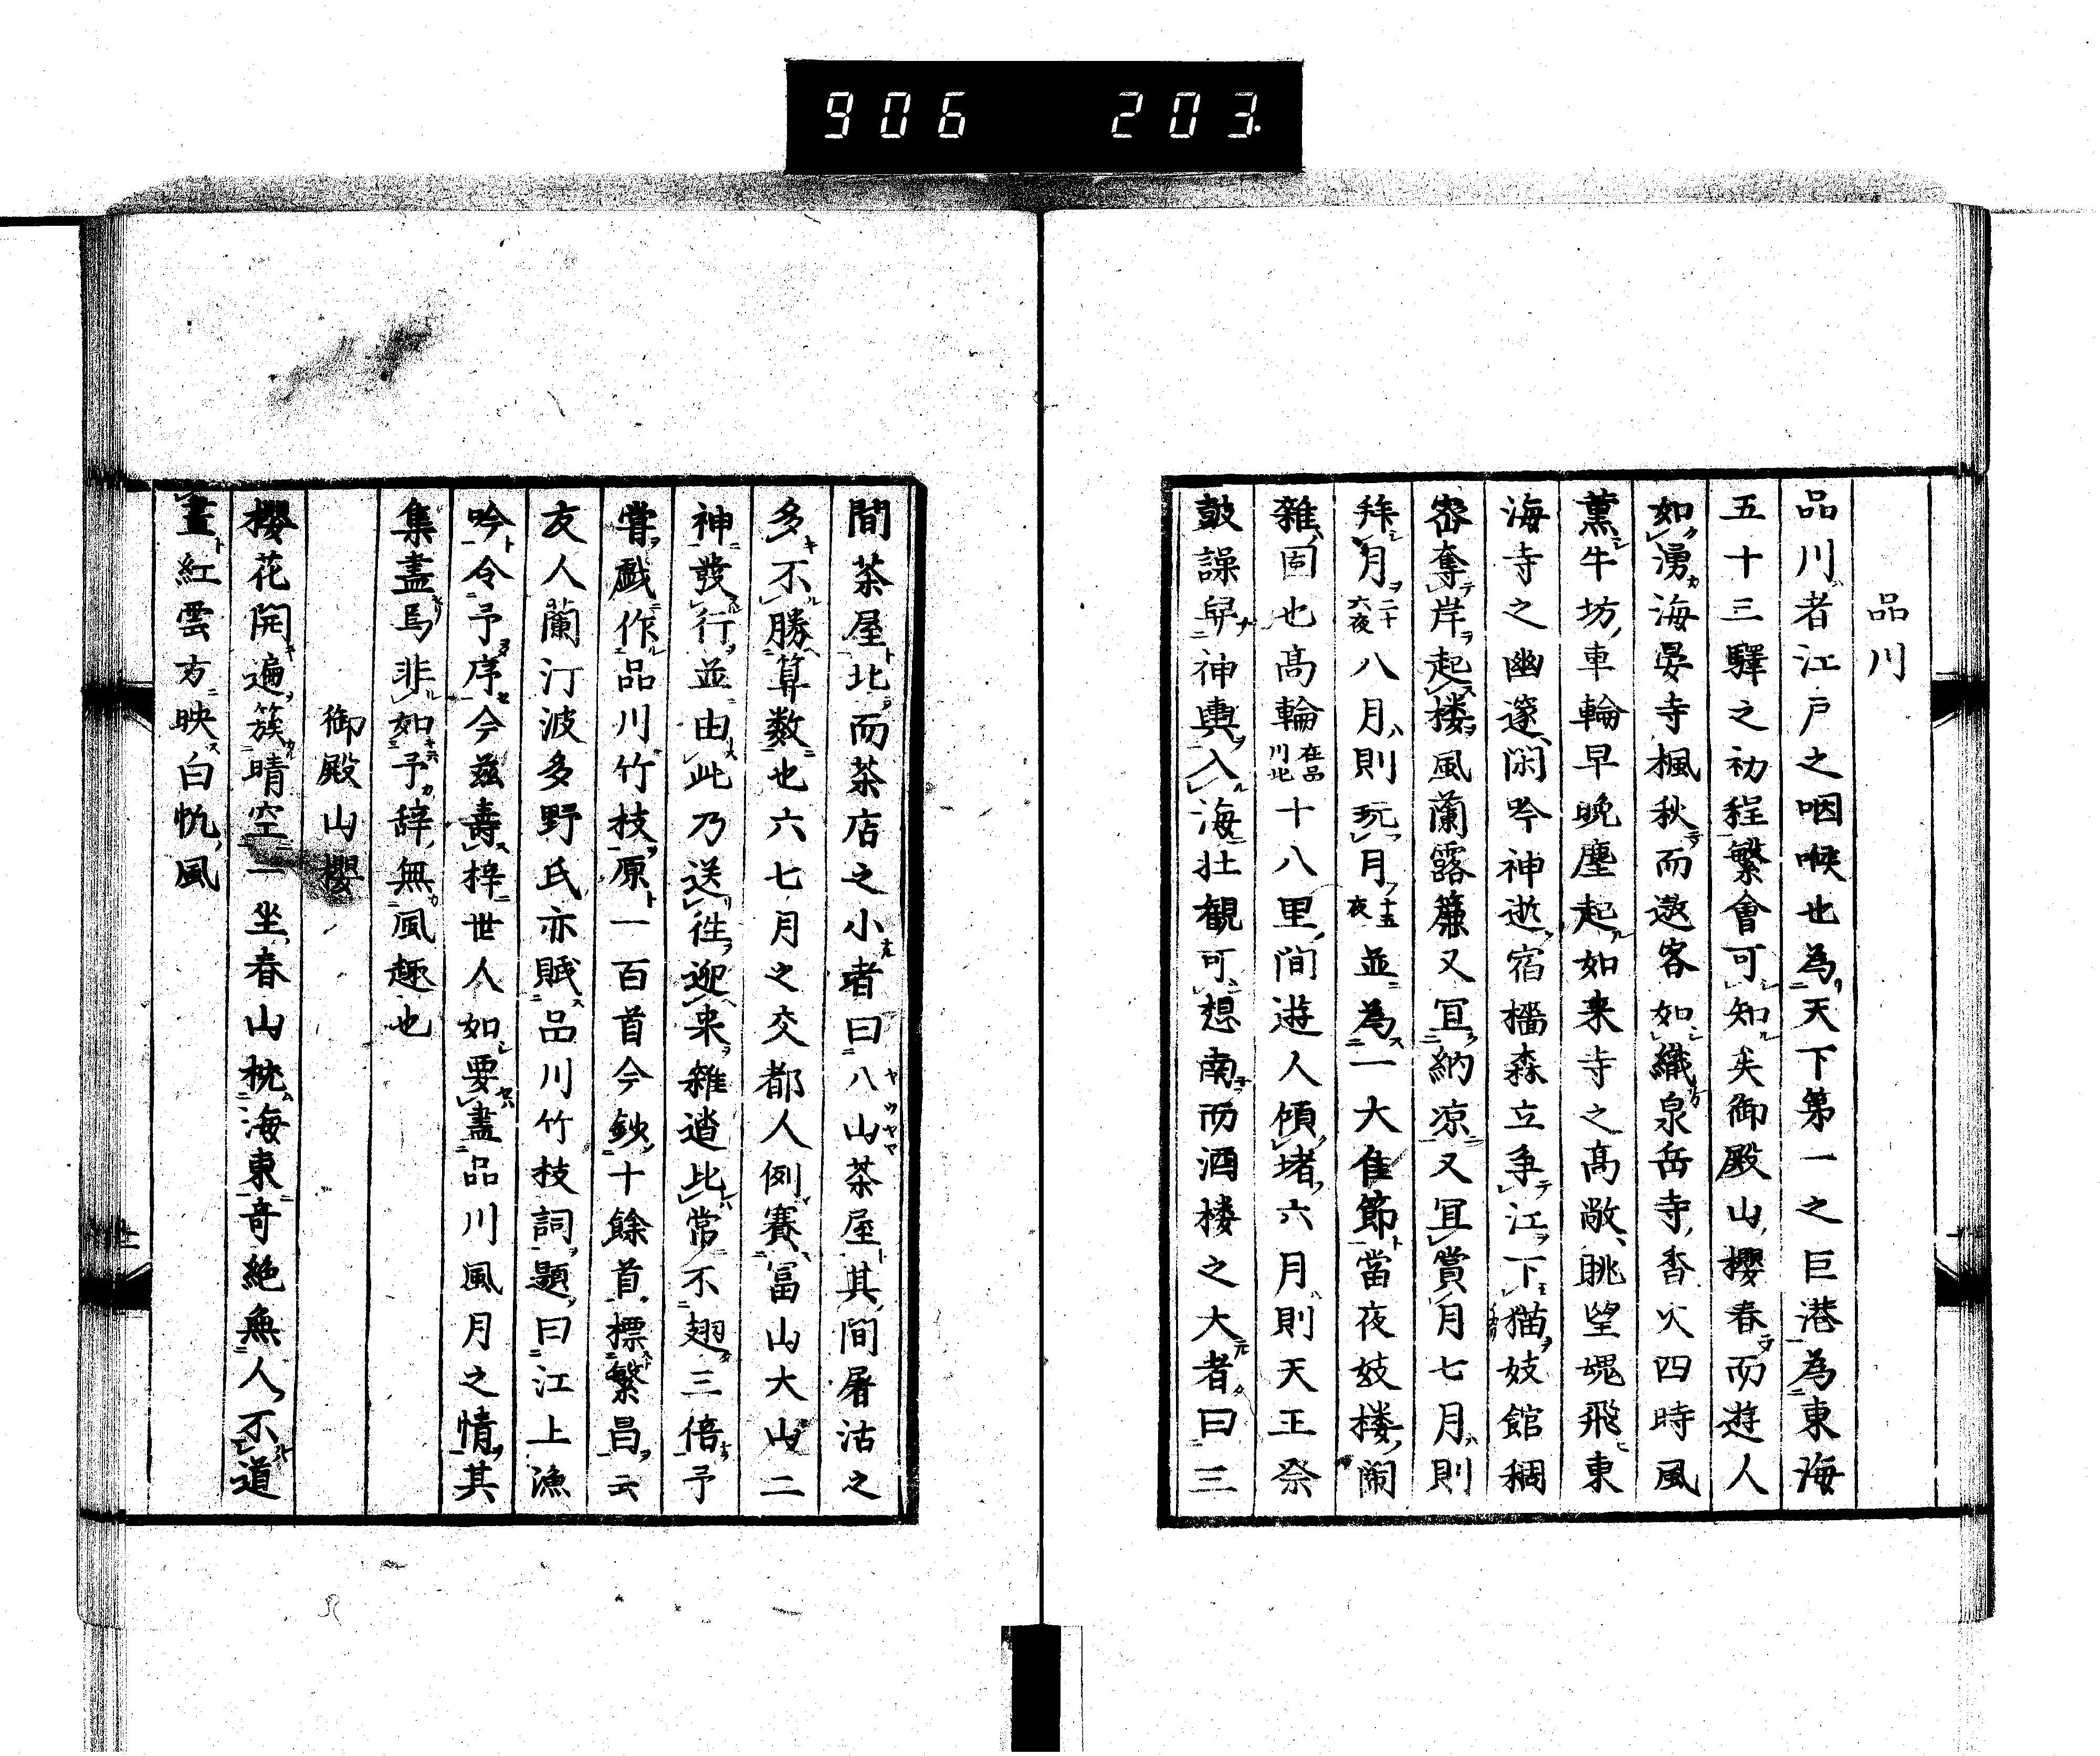 906 203
品川
品川者江戸之咽喉也為天下第一之巨港為東海
五十三驛之初程繁會可知矣御殿山櫻春而遊人
如湧海晏寺楓秋而遨客如織泉岳寺香火四時風
薫牛坊車輪早晩塵起如来寺之高敞眺望魂飛東
海寺之幽邃閑吟神逝宿檣森立争江下猫妓館稠
密奪岸起楼風蘭露簾又冝納凉又冝賞月七月則
拜月二十六夜八月則玩月十五夜並為一大佳節當夜妓楼闹
雜固也高輪在品川北十八里間遊人傾堵六月則天王祭
鼓譟舁神輿入海壮観可想南而酒楼之大者曰三
間茶屋北而茶店之小者曰八山茶屋其間屠沽之
多不勝算数也六七月之交都人例賽冨山大山二
神發行並由此乃送徃迎来雜遝比常不翅三倍予
嘗戯作品川竹枝原一百首今鈔十餘首標繁昌云
友人蘭汀波多野氏亦賦品川竹枝詞題曰江上漁
吟令予序今茲壽梓世人如要盡品川風月之情其
集盡焉非如予辞無風趣也
御殿山櫻
櫻花開遍簇晴空一坐春山枕海東奇絶無人不道
畫紅雲方映白帆風